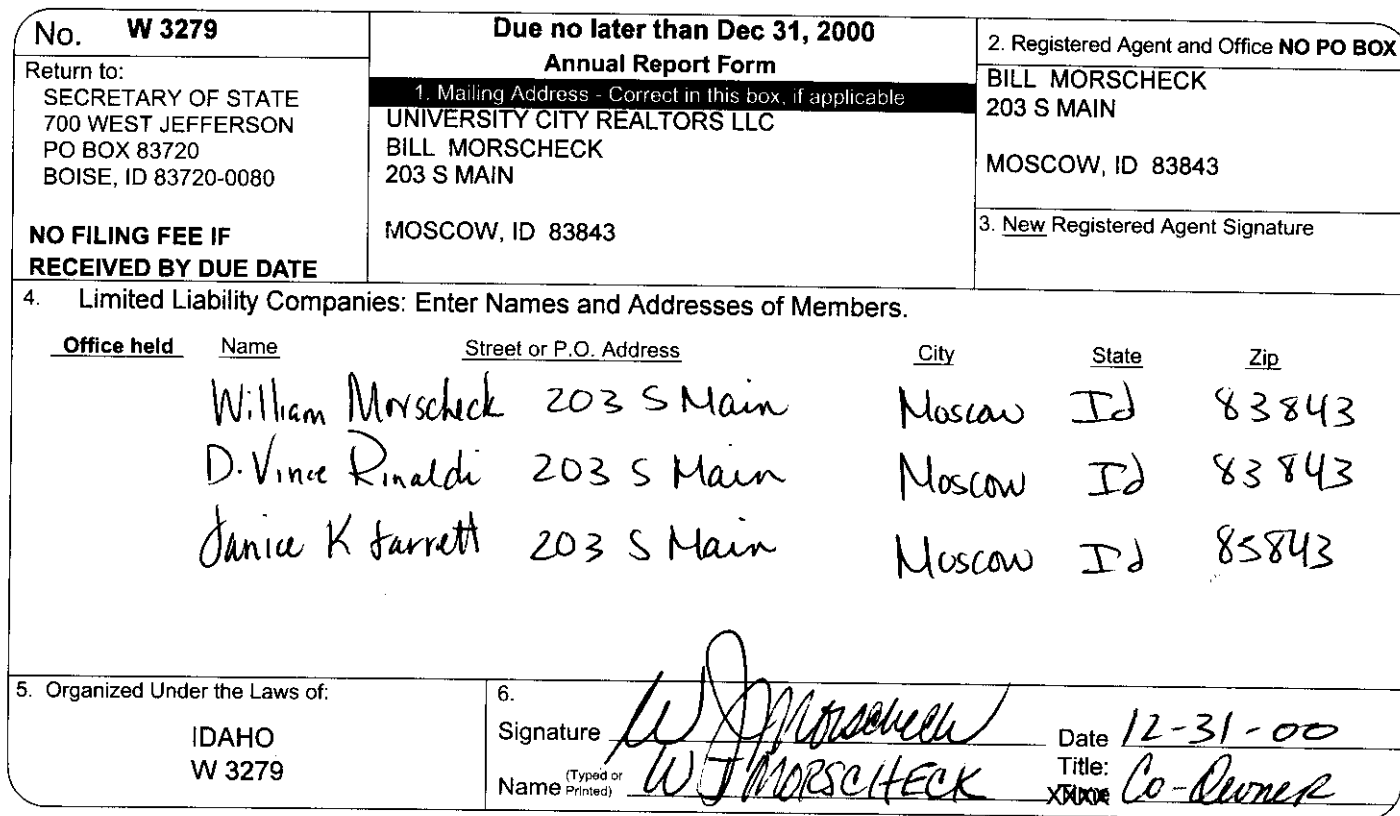 No. W 3279
Return to:
SECRETARY OF STATE
700 WEST JEFFERSON
PO BOX 83720
BOISE, ID 83720-0080
NO FILING FEE IF
RECEIVED BY DUE DATE
Due no later than Dec 31, 2000
Annual Report Form
1. Mailing Address - Correct in this box, if applicable
UNIVERSITY CITY REALTORS LLC
BILL MORSCHECK
203 S MAIN
MOSCOW, ID 83843
2. Registered Agent and Office NO PO BOX
BILL MORSCHECK
203 S MAIN
MOSCOW, ID 83843
3. New Registered Agent Signature
4. Limited Liability Companies: Enter Names and Addresses of Members.
Office held Name Street or P.O. Address City State Zip
William Morscheck 203 S Main Moscow Id 83843
D. Vince Rinaldi 203 S Main Moscow Id 83843
Janice K 203 S Main Moscow Id 85843
5. Organized Under the Laws of:
IDAHO
W 3279
6.
Signature W J Morscheck Date 12-31-00
Name (Typed or Printed) W J MORSCHECK Title: Co-Owner